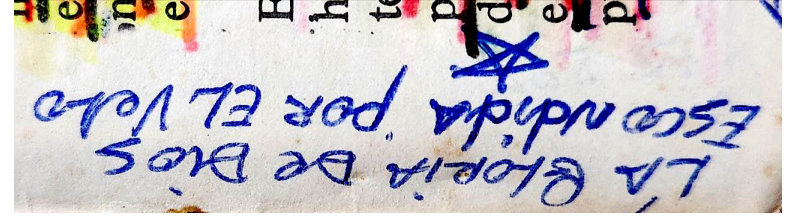 LA GLORIA DE DIOS
ESCONDIDA POR EL Velo